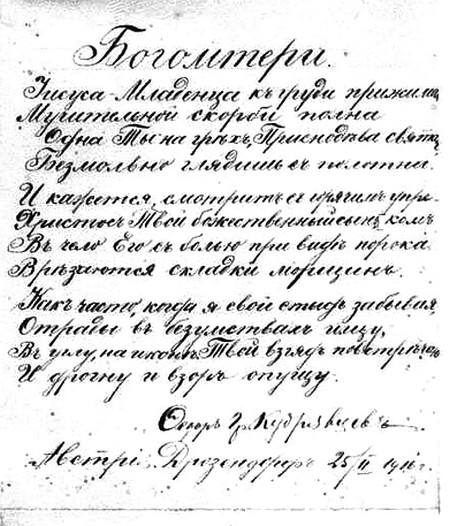 Богомтери.
Іисуса-Младенца къ груди прижима
Мучительной скорби полна
Одна Ты на грѣхъ, Приснодѣва святая,
Безмолвно глядишь съ полотна.
И кажется, смотритъ съ горячимъ упре-
Христосъ Твой божественный сынъ, комъ
Въ чело Его съ болью при видѣ порока
Врѣзаются складки морщинъ.
Какъ часто, когда я свой стыдъ забывая,
Отрады въ безумствахъ ищу,
Въ углу, на иконѣ Твой взглядъ повстрѣчаю
И дрогну и взоръ опущу.
Кудрявцевъ
Австрія. Дрозендорфъ 25/II 1916 г.